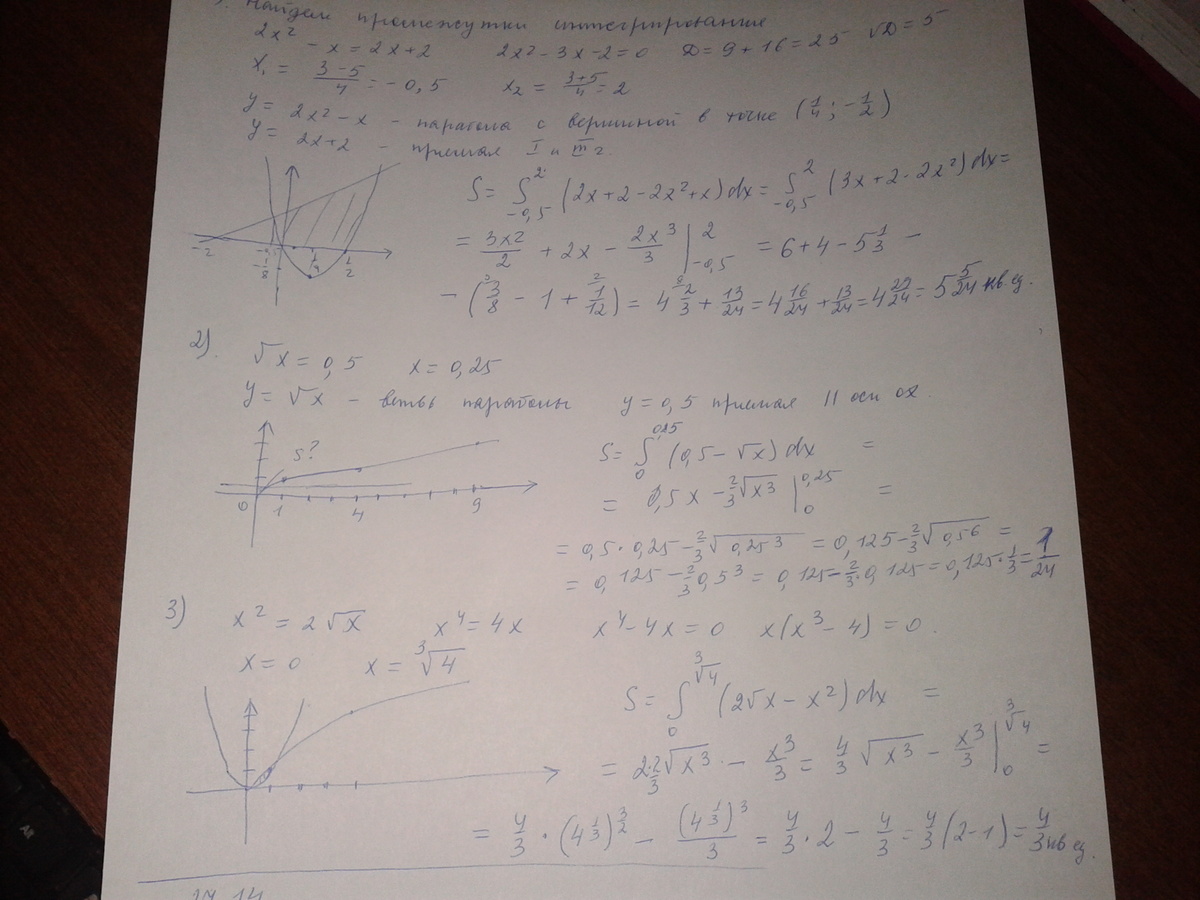 Найдем промежутки интегрирования
2x² - x = 2x+2   2x²-3x-2=0   D=9+16=25   √D=5
x₁ = (3-5)/4 = -0,5   x₂ = (3+5)/4 = 2
y = 2x²-x - парабола с вершиной в точке (1/4; -1/2)
y = 2x+2 - прямая I и III г.
S = ∫_{-0,5}^{2} (2x+2-2x²+x)dx = ∫_{-0,5}^{2} (3x+2-2x²)dx =
= 3x²/2 + 2x - 2x³/3 |_{-0,5}^{2} = 6+4-5 1/3 -
-2   -1/8   1/4   1/2
- (3/8 - 1 + 1/12) = 4 2/3 + 13/24 = 4 16/24 + 13/24 = 4 29/24 = 5 5/24 кв.ед.
2).
√x = 0,5   x = 0,25
y = √x - ветвь параболы   y = 0,5 прямая || оси ох.
S?
S = ∫_{0}^{0,25} (0,5-√x)dx =
0   1   4   9
= 0,5x - 2/3 √x³ |_{0}^{0,25} =
= 0,5·0,25 - 2/3 √0,25³ = 0,125 - 2/3 √0,5⁶ =
= 0,125 - 2/3 0,5³ = 0,125 - 2/3·0,125 = 0,125·1/3 = 1/24
3)   x² = 2√x   x⁴ = 4x   x⁴-4x = 0   x(x³-4) = 0.
x = 0   x = ³√4
S = ∫_{0}^{³√4} (2√x - x²)dx =
= 2·2/3 √x³ - x³/3 = 4/3 √x³ - x³/3 |_{0}^{³√4} =
= 4/3 · (4^{1/3})^{3/2} - (4^{1/3})³/3 = 4/3 · 2 - 4/3 = 4/3 (2-1) = 4/3 кв ед.